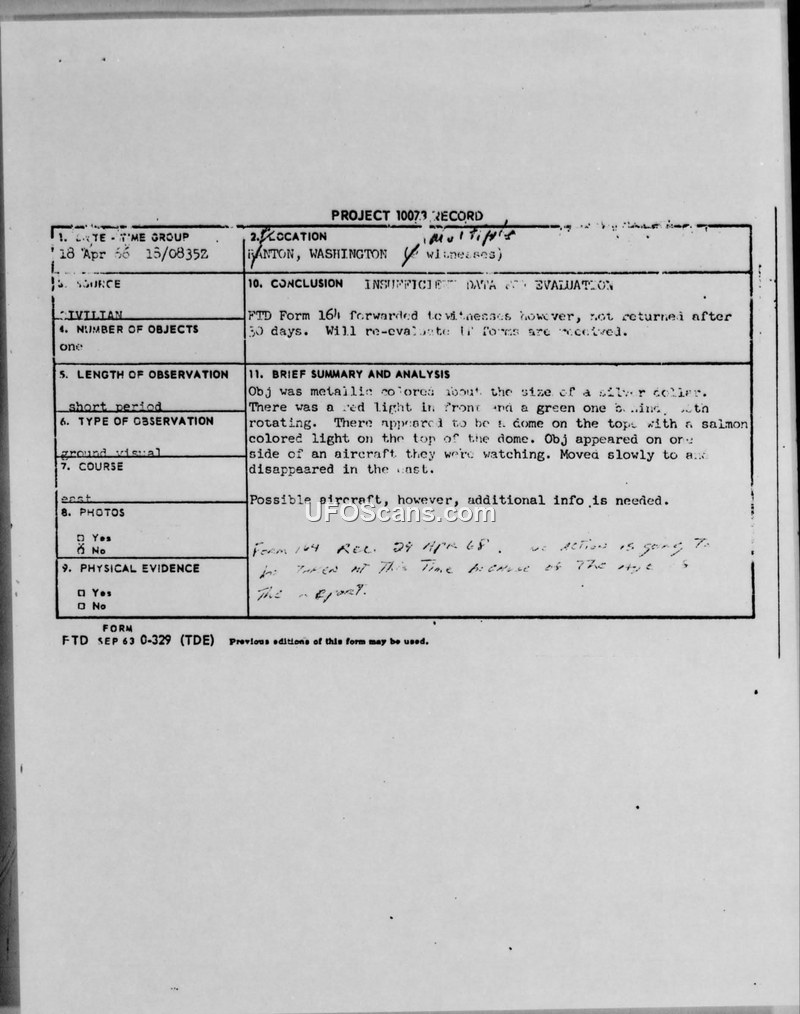 PROJECT 10073 RECORD
1. DATE - TIME GROUP
18 Apr 66 18/0835Z
2. LOCATION
WANTON, WASHINGTON (multiple witnesses)
3. SOURCE
CIVILIAN
10. CONCLUSION INSUFFICIENT DATA FOR EVALUATION
FTD Form 164 forwarded to witnesses however, not returned after
30 days. Will re-evaluate if forms are received.
4. NUMBER OF OBJECTS
one
5. LENGTH OF OBSERVATION
short period
11. BRIEF SUMMARY AND ANALYSIS
Obj was metallic colored about the size of a silver dollar.
There was a red light in front and a green one behind, both
rotating. There appeared to be a dome on the top, with a salmon
colored light on the top of the dome. Obj appeared on one
side of an aircraft they were watching. Moved slowly to and
disappeared in the east.
Possible aircraft, however, additional info is needed.
6. TYPE OF OBSERVATION
ground visual
7. COURSE
east
8. PHOTOS
□ Yes
☒ No
Form 164 Rec. 29 Apr 68. No action is going to
be taken at this time because of the age of
the report.
9. PHYSICAL EVIDENCE
□ Yes
□ No
FORM
FTD SEP 63 0-329 (TDE) Previous editions of this form may be used.
UFOScans.com